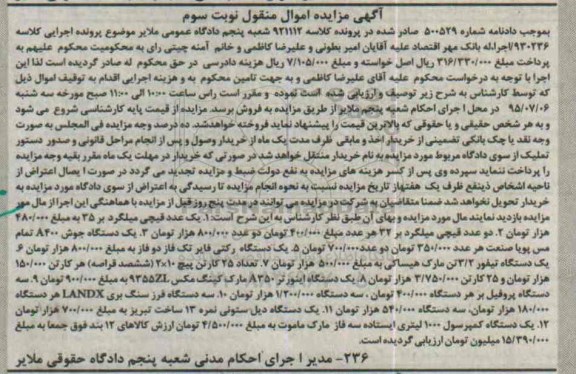 آگهی مزایده اموال منقول نوبت سوم
بموجب دادنامه شماره ۵۰۰۵۲۹ صادر شده در پرونده کلاسه ۹۲۱۱۱۲ شعبه پنجم دادگاه عمومی ملایر موضوع پرونده اجرایی کلاسه
۹۳۰۲۳۶/اجرا،له بانک مهر اقتصاد علیه آقایان امیر بطونی و علیرضا کاظمی و خانم آمنه چیتی رای به محکومیت محکوم علیهم به
پرداخت مبلغ ۳۱۶/۳۳۰/۰۰۰ ریال اصل خواسته و مبلغ ۷/۱۰۵/۰۰۰ ریال هزینه دادرسی در حق محکوم له صادر گردیده است لذا این
اجرا با توجه به درخواست محکوم علیه آقای علیرضا کاظمی و به جهت تامین محکوم به و هزینه اجرایی اقدام به توقیف اموال ذیل
که توسط کارشناس به شرح زیر توصیف و ارزیابی شده است نموده و مقرر است راس ساعت ۱۰:۰۰ الی ۱۱:۰۰ صبح مورخه سه شنبه
۹۵/۰۷/۰۶ در محل اجرای احکام شعبه پنجم ملایر از طریق مزایده به فروش برسد. مزایده از قیمت پایه کارشناسی شروع می شود
و به هر شخص حقیقی و یا حقوقی که بالاترین قیمت را پیشنهاد نماید فروخته خواهدشد. ده درصد وجه مزایده فی المجلس به صورت
وجه نقد یا چک بانکی تضمینی از خریدار اخذ و مابقی ظرف مدت یک ماه از خریدار وصول و پس از انجام مراحل قانونی و صدور دستور
تملیک از سوی دادگاه مربوط مورد مزایده به نام خریدار منتقل خواهد شد در صورتی که خریدار در مهلت یک ماه مقرر بقیه وجه مزایده
را پرداخت ننماید سپرده وی پس از کسر هزینه های مزایده به نفع دولت ضبط و مزایده تجدید می گردد در صورت ا یصال اعتراض از
ناحیه اشخاص ذینفع ظرف یک هفتهاز تاریخ مزایده نسبت به نحوه انجام مزایده تا رسیدگی به اعتراض از سوی دادگاه مورد مزایده به
خریدار تحویل نخواهد شد ضمنا متقاضیان به شرکت در مزایده می توانند در مدت پنج روز قبل از مزایده با هماهنگی این اجرا از مال مورد
مزایده بازدید نمایند مال مورد مزایده و بهای آن طبق نظر کارشناس به این شرح است: ۱. یک عدد قیچی میلگرد بر ۳۵ به مبلغ ۴۸۰/۰۰۰
هزار تومان ۲. دو عدد قیچی میلگرد بر ۳۲ هر عدد مبلغ ۴۰۰/۰۰۰ تومان دو عدد ۸۰۰/۰۰۰ هزار تومان ۳. یک دستگاه جوش ۸۴۰۰ تمام
مس پویا صنعت هر عدد ۳۵۰/۰۰۰ تومان دو عدد ۷۰۰/۰۰۰ تومان ۵. یک دستگاه رکتی فایر تک فاز دو فاز به مبلغ ۸۰۰/۰۰۰ هزار تومان ۶.
یک دستگاه تیفور ۳/۲تن مارک هیساکی به مبلغ ۵۰۰/۰۰۰ هزار تومان ۷. تعداد ۲۵ کارتن پیچ ۱۰×۳ (ششصد قراصه) هر کارتن ۱۵۰/۰۰۰
هزار تومان و ۲۵ کارتن ۳/۷۵۰/۰۰۰ هزار تومان ۸. یک دستگاه اینورتر ۸۳۵۰ مارک کینگ مکس ۹۳۵۵ZL به مبلغ ۹۰۰/۰۰۰ تومان ۹. سه
دستگاه پروفیل بر هر دستگاه ۴۰۰/۰۰۰ تومان ، سه دستگاه ۱/۲۰۰/۰۰۰ هزار تومان ۱۰. سه دستگاه فرز سنگ بری LANDX هر دستگاه
۱۸۰/۰۰۰ هزار تومان، سه دستگاه ۵۴۰/۰۰۰ هزار تومان ۱۱. یک دستگاه دیل ستونی نمره ۱۳ ساخت تبریز به مبلغ ۷۰۰/۰۰۰ هزار تومان
۱۲. یک دستگاه کمپرسول ۱۰۰۰ لیتری ایستاده سه فاز مارک ماموت به مبلغ ۴/۵۰۰/۰۰۰ تومان ارزش کالاهای ۱۲ بند فوق جمعا به مبلغ
۱۵/۳۹۰/۰۰۰ میلیون تومان ارزیابی گردیده است.
۲۳۶- مدیر ا جرای احکام مدنی شعبه پنجم دادگاه حقوقی ملایر